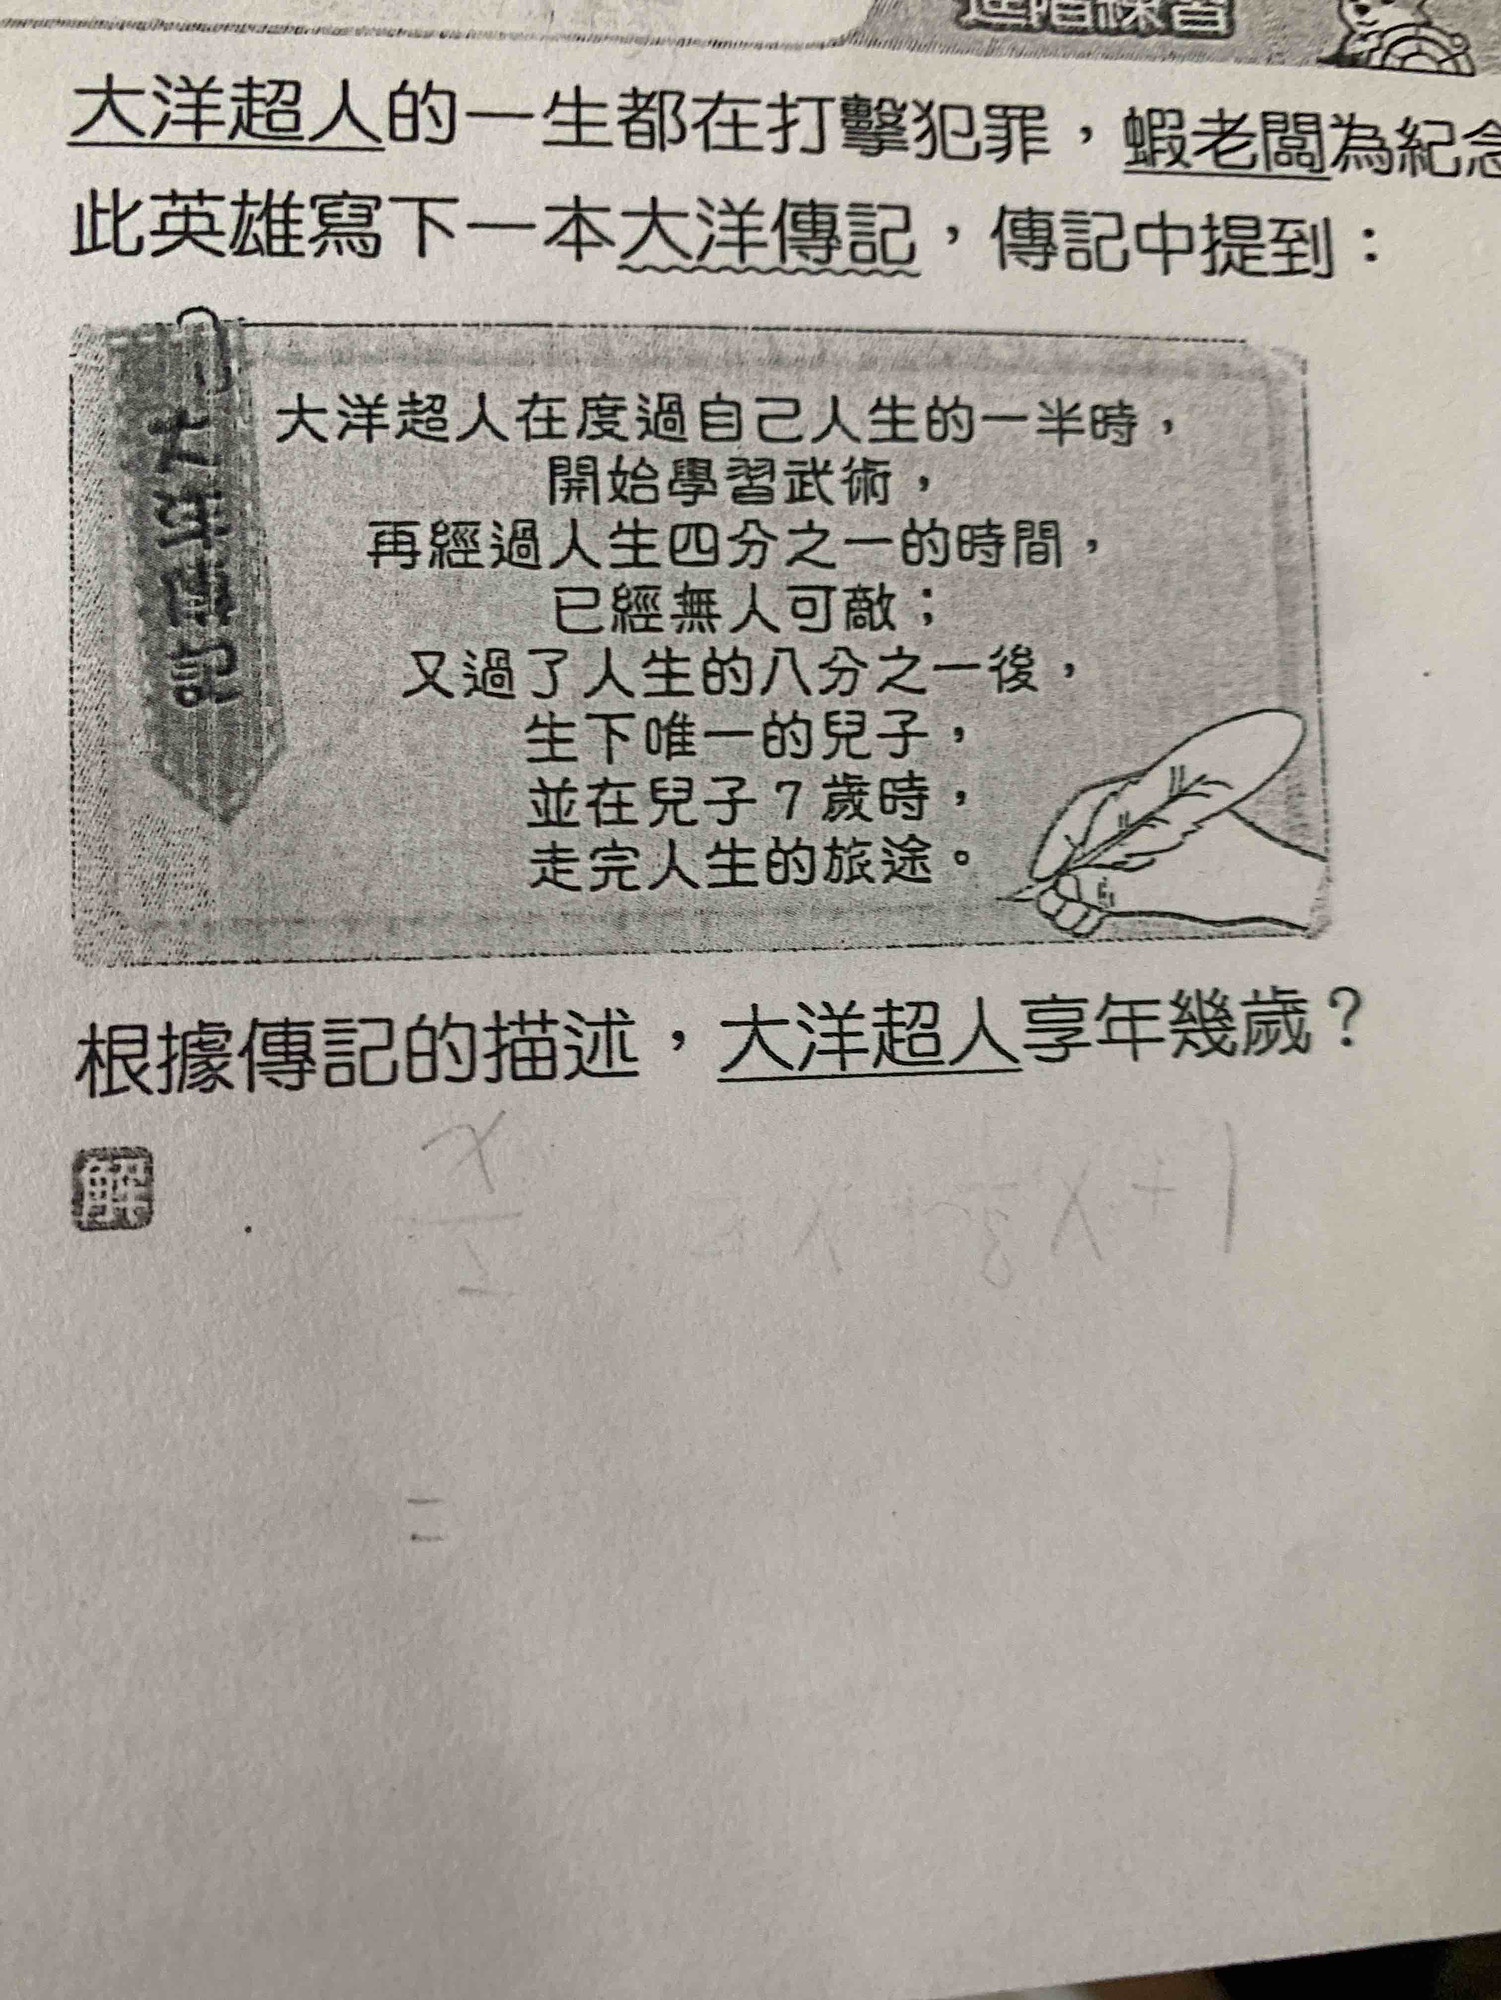 進階練習
大洋超人的一生都在打擊犯罪，蝦老闆為紀念
此英雄寫下一本大洋傳記，傳記中提到：
大洋傳記
大洋超人在度過自己人生的一半時，
開始學習武術，
再經過人生四分之一的時間，
已經無人可敵；
又過了人生的八分之一後，
生下唯一的兒子，
並在兒子7歲時，
走完人生的旅途。
根據傳記的描述，大洋超人享年幾歲？
解
=